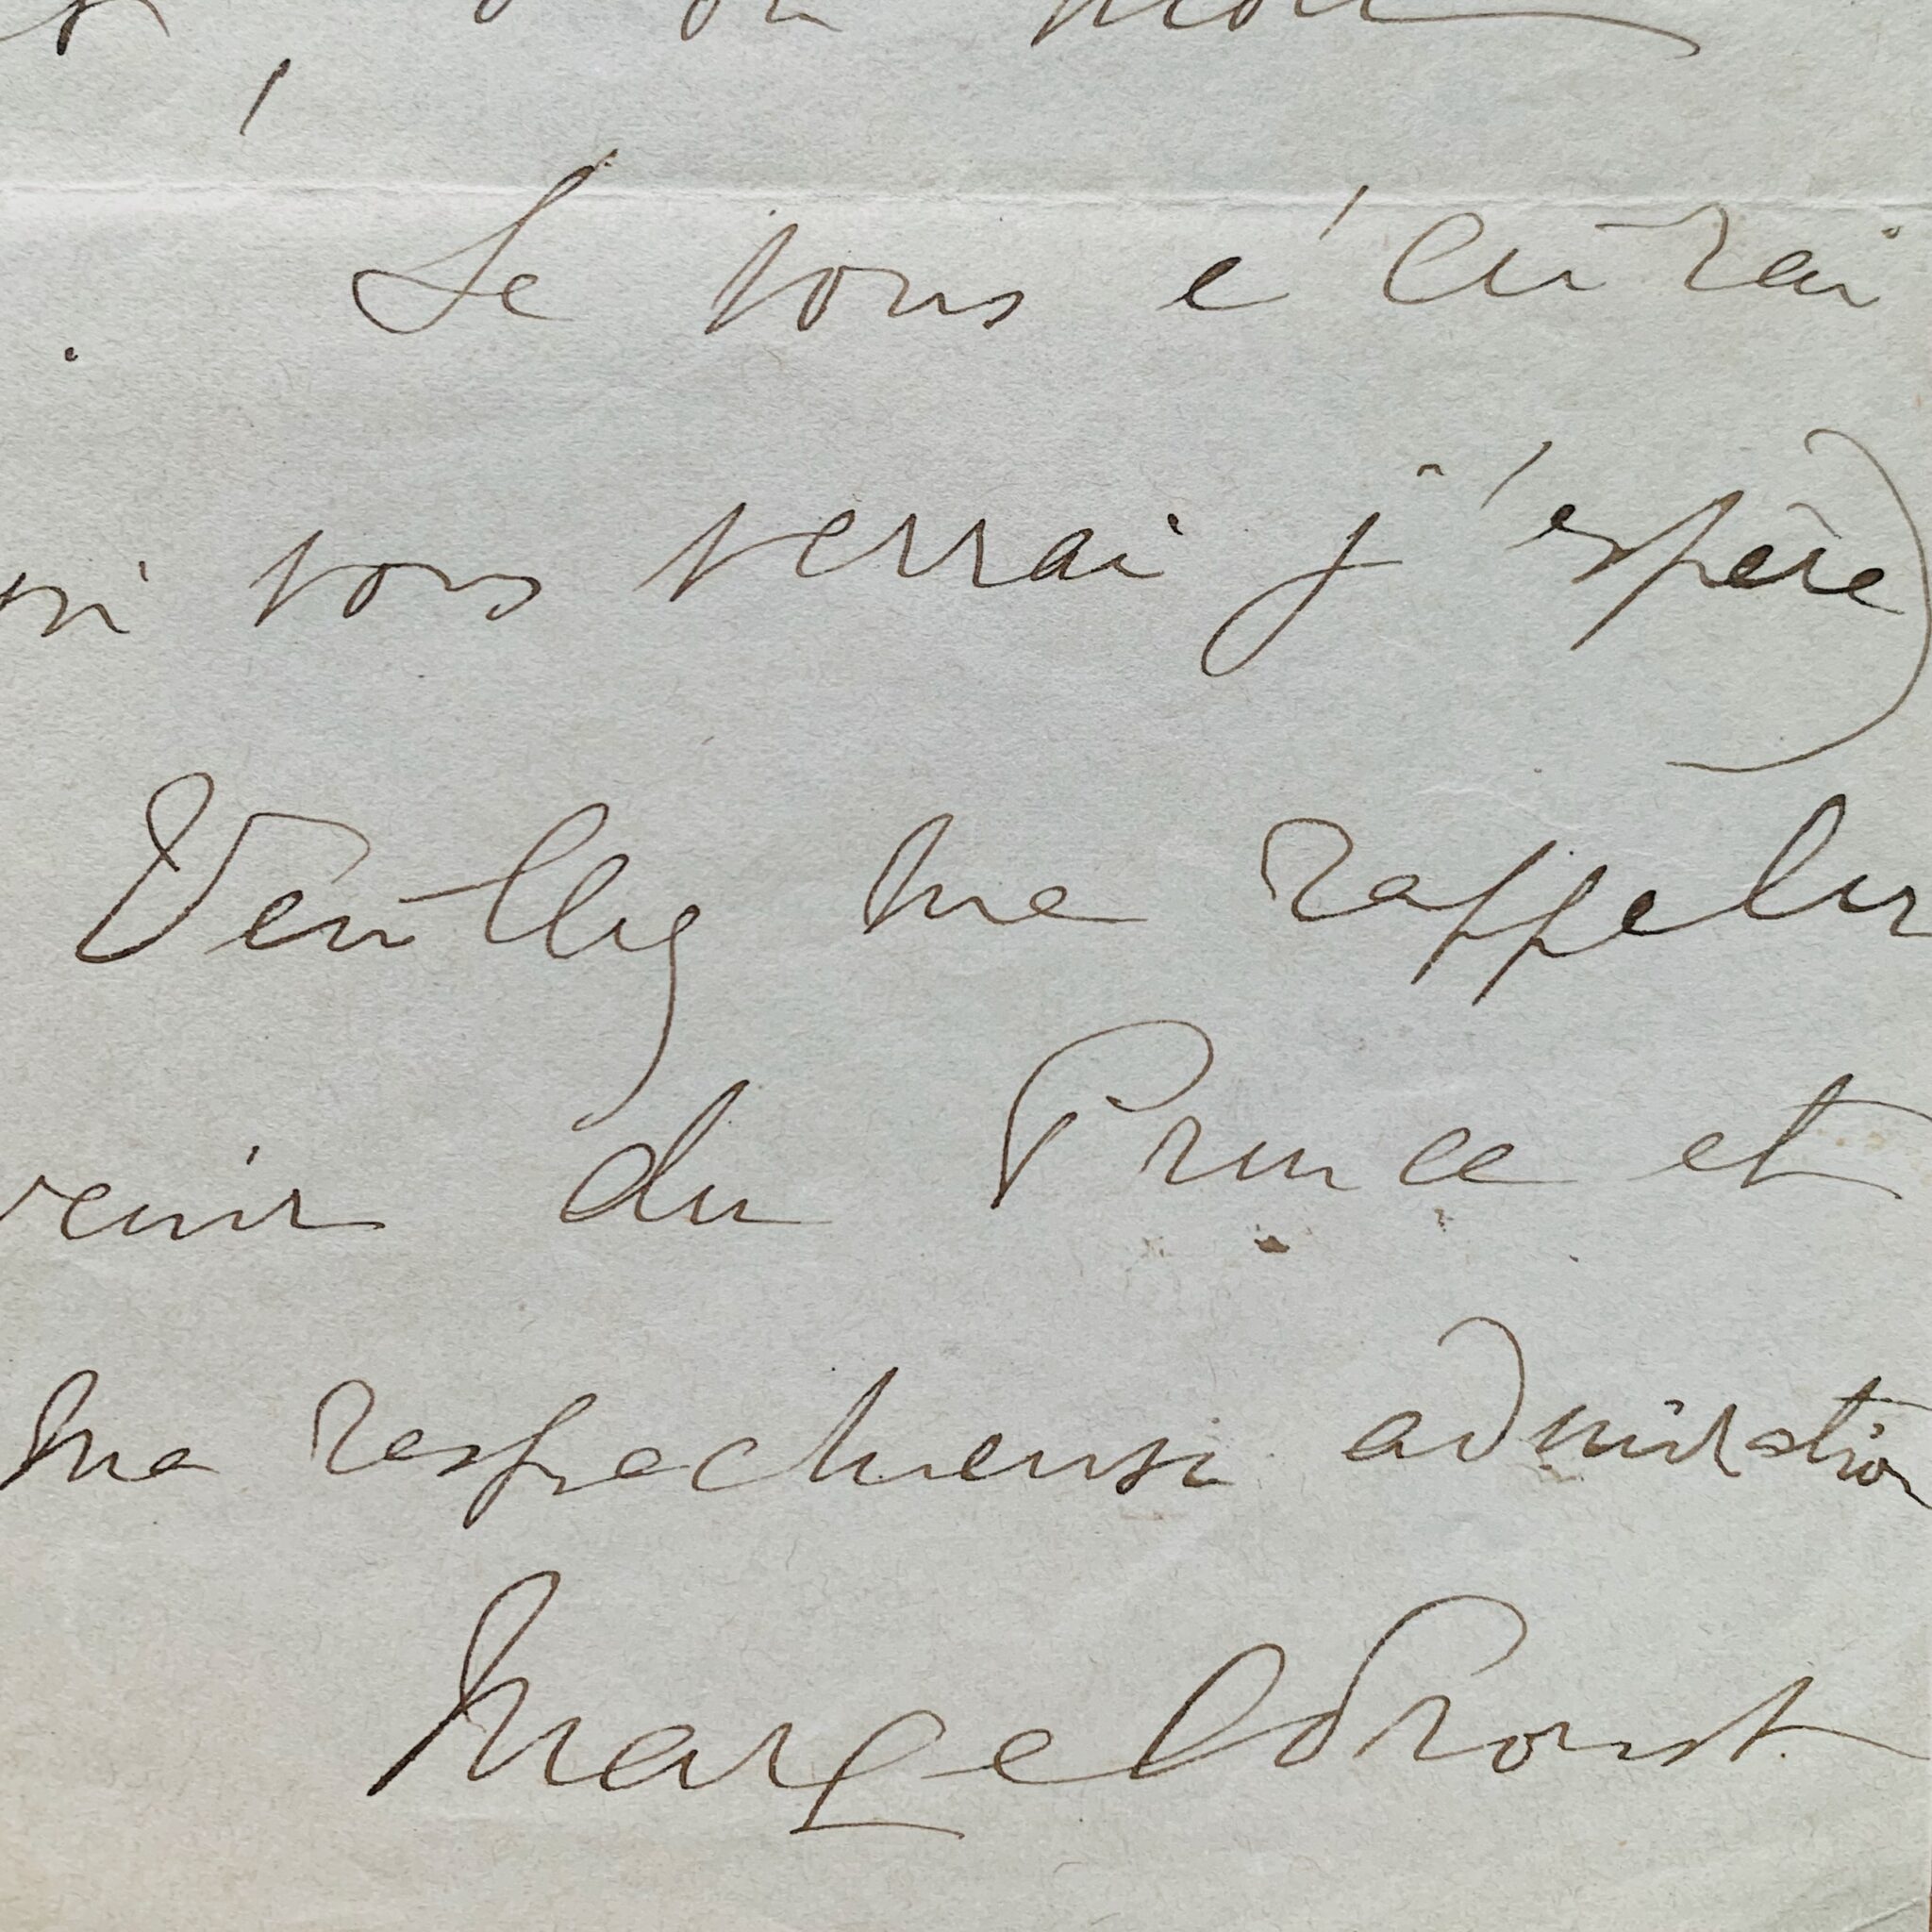 Je vous écrirai
vous verrai j'espère)
Veuillez me rappeler
venir du Prince et
ma respectueuse admiration
Marcel Proust